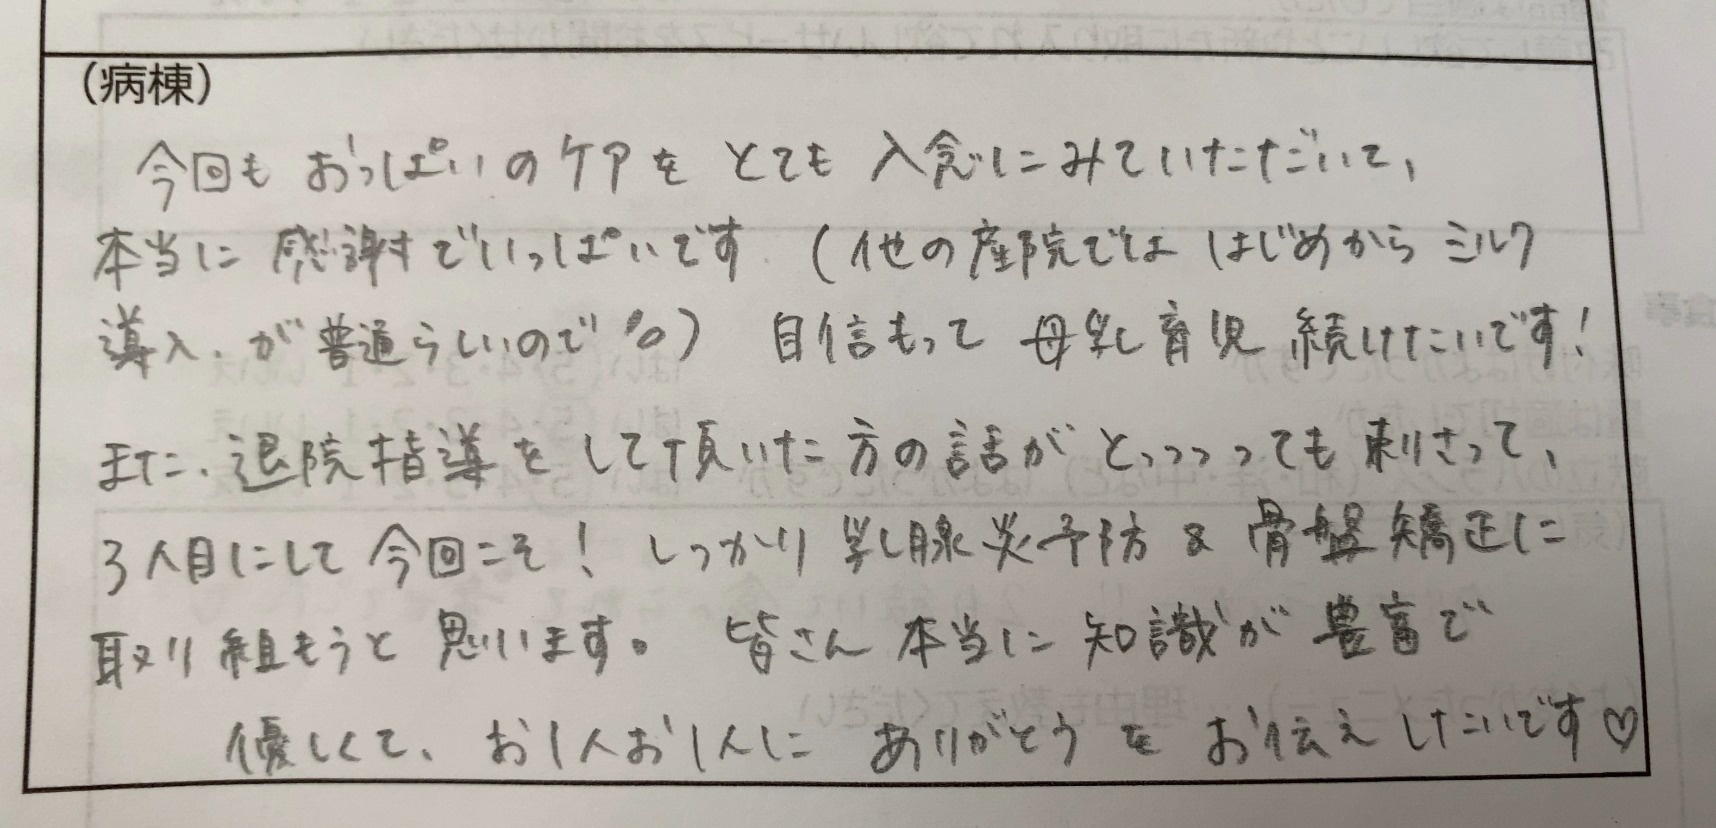 (病棟)
今回も おっぱいのケアを とても 入念にみていただいて、
本当に 感謝でいっぱいです (他の産院では はじめから ミルク
導入、が普通らしいので 。) 自信もって 母乳育児 続けたいです!
また、退院指導をして頂いた方の話が とっっっっても 刺さって、
3人目にして 今回こそ! しっかり 乳腺炎予防 & 骨盤矯正に
取り組もうと 思います。 皆さん 本当に 知識が 豊富で
優しくて、 お1人お1人に ありがとう を お伝え したいです♡